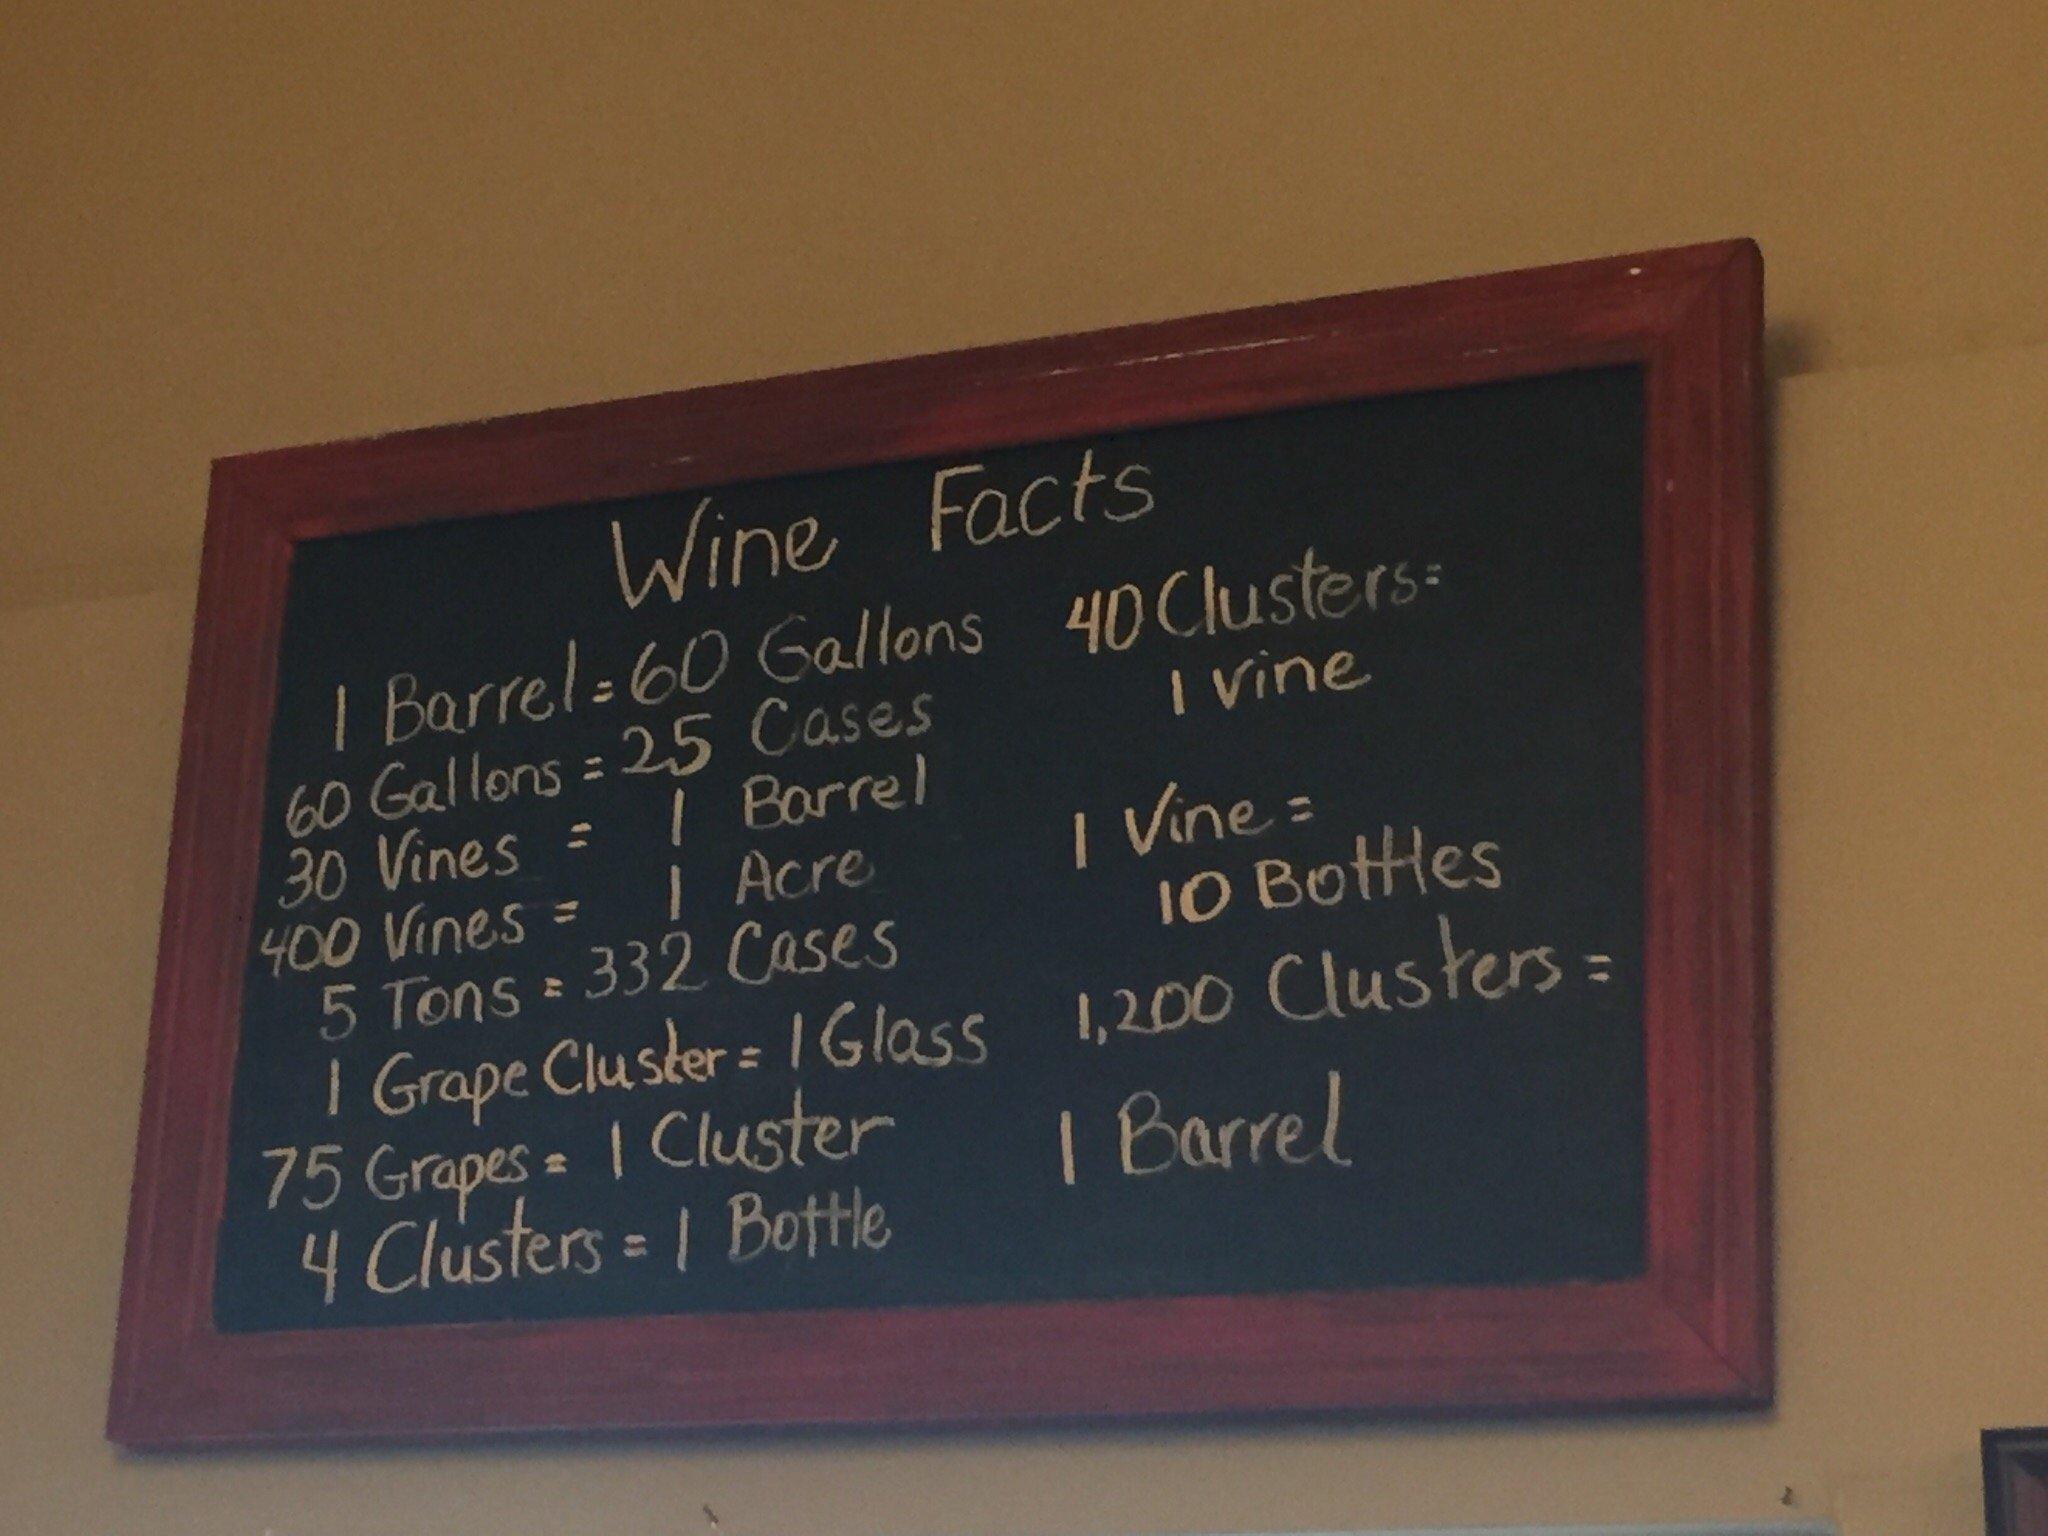 Wine Facts
1 Barrel = 60 Gallons
60 Gallons = 25 Cases
30 Vines = 1 Barrel
400 Vines = 1 Acre
5 Tons = 332 Cases
1 Grape Cluster = 1 Glass
75 Grapes = 1 Cluster
4 Clusters = 1 Bottle
40 Clusters =
1 vine
1 Vine =
10 Bottles
1,200 Clusters =
1 Barrel